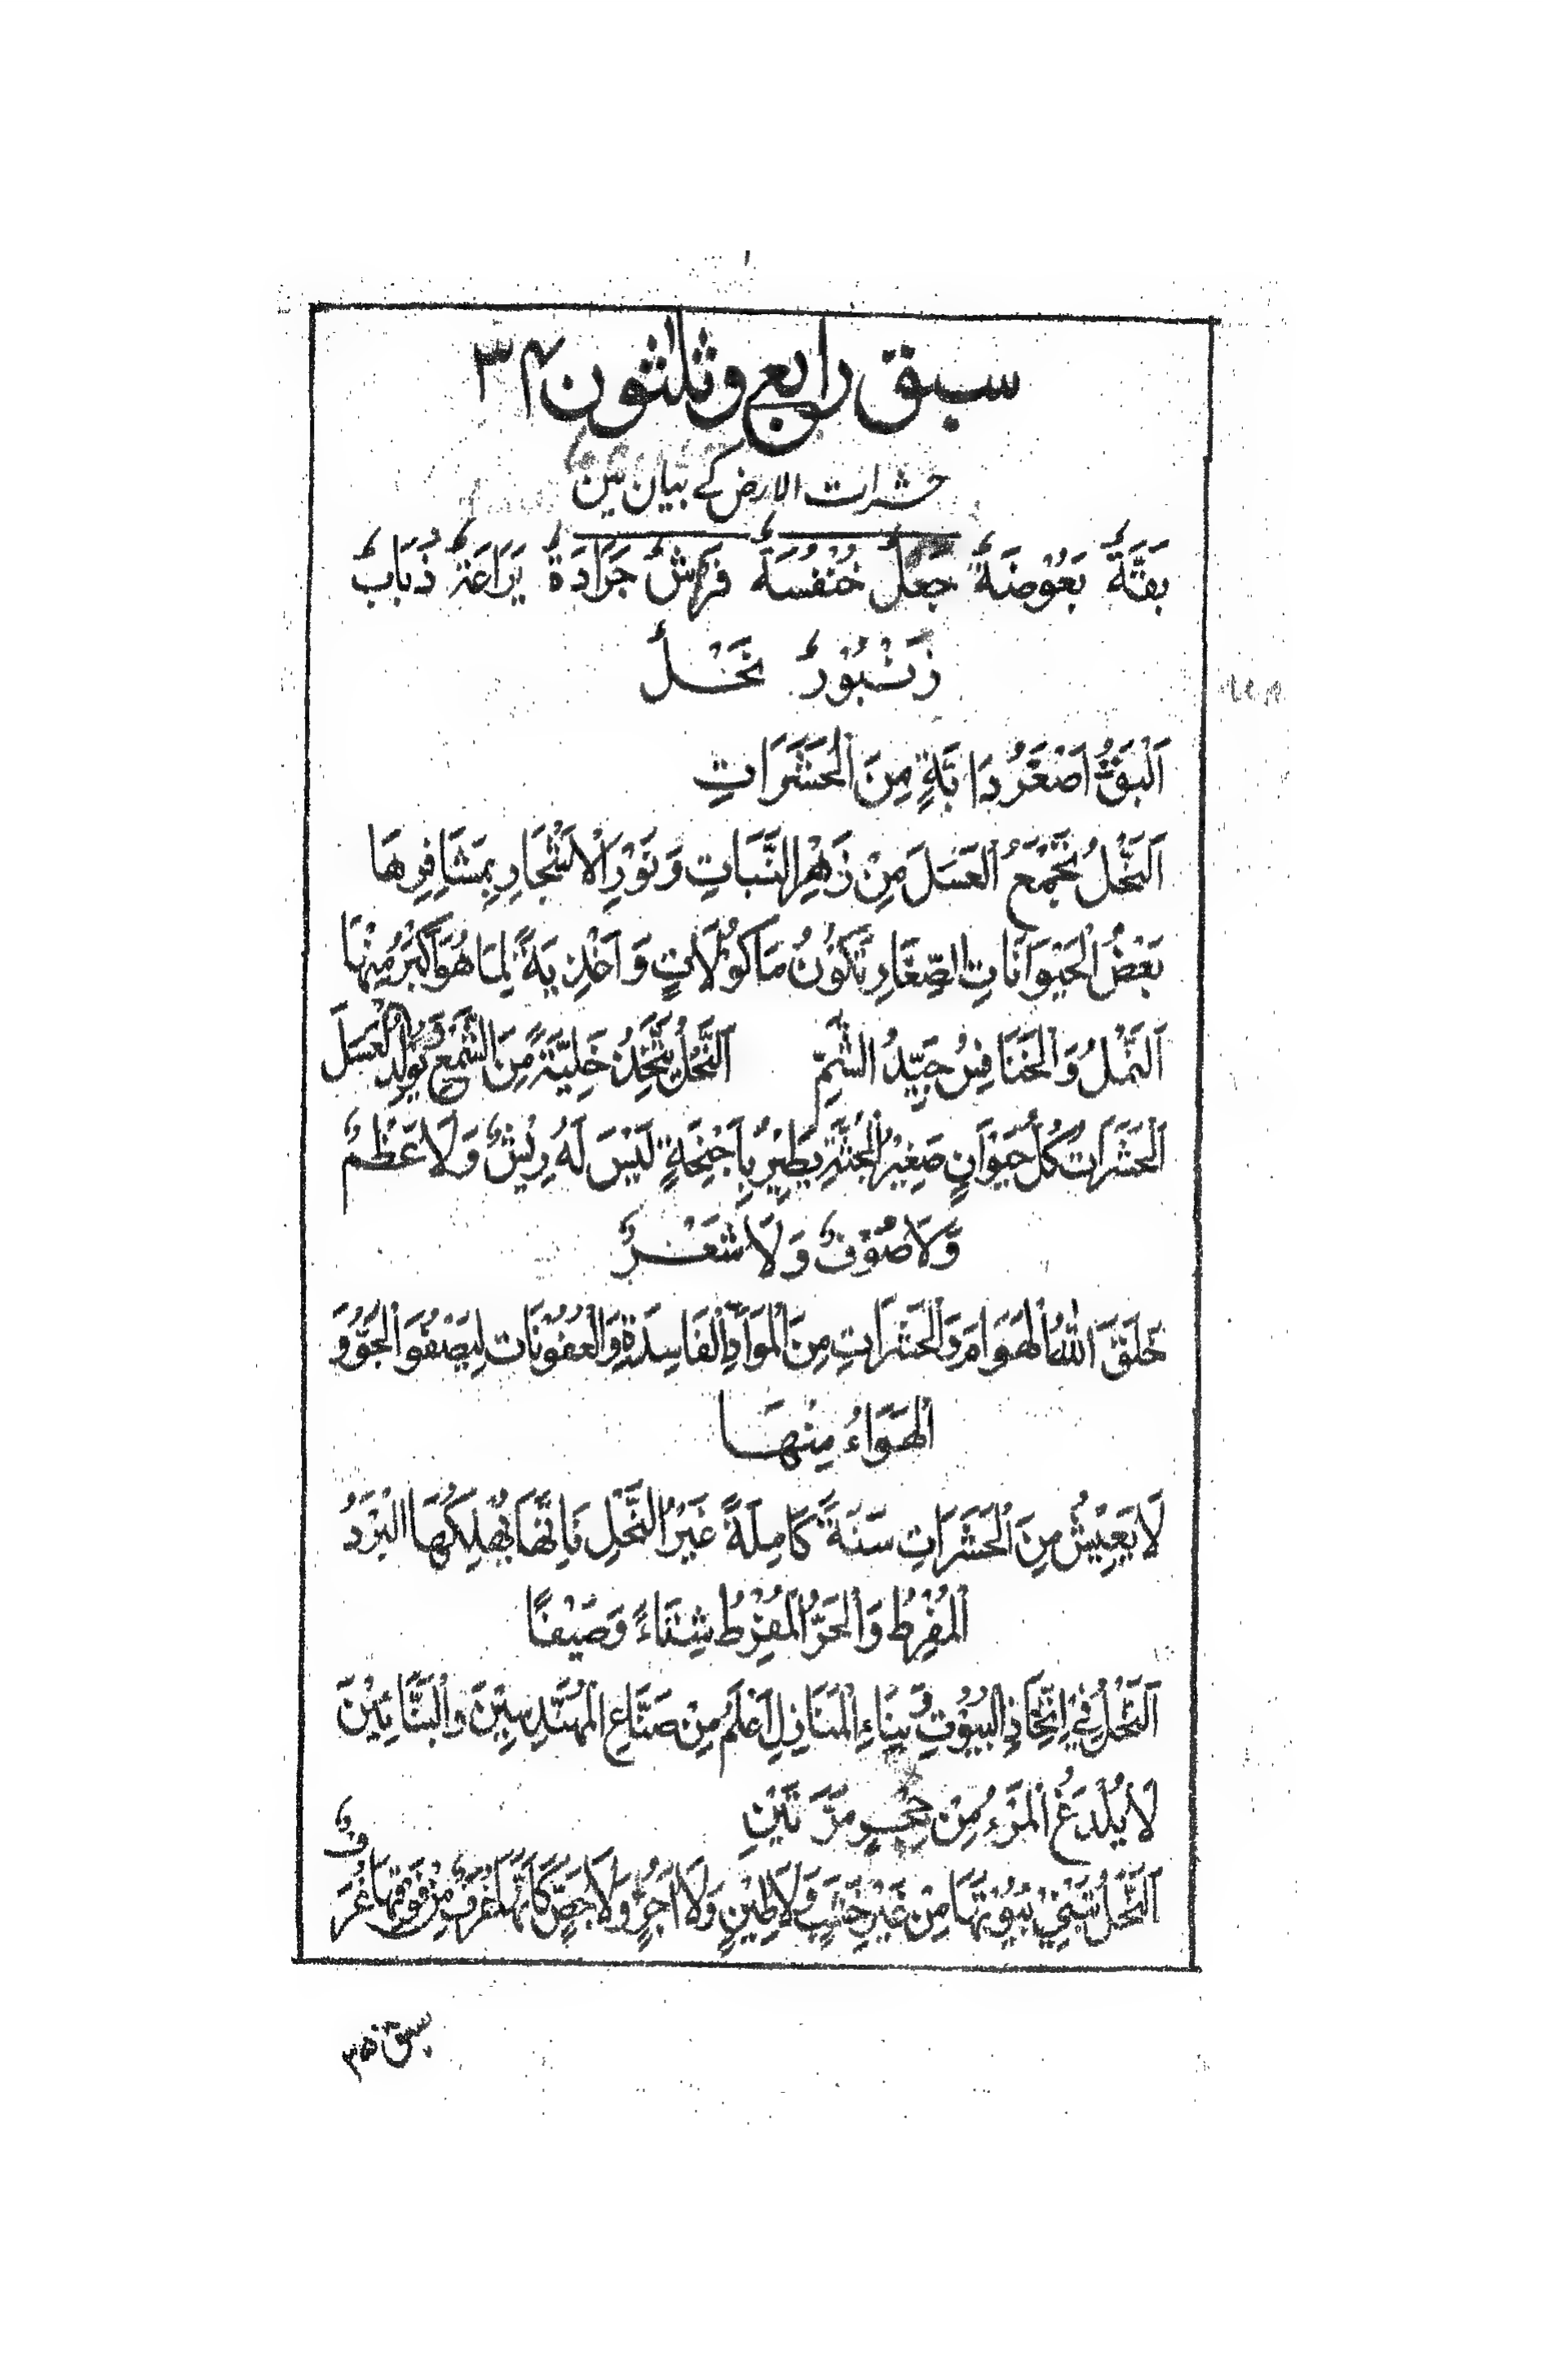 سبق رابع وثلثون ۳۴
حشرات الارض کے بیان مین
بَقَّةٌ بَعُوْضَةٌ جُعَلٌ خُنْفُسَةٌ فَرَاشٌ جَرَادَةٌ يَرَاعَةٌ ذُبَابٌ
زَنْبُوْرٌ نَحْلٌ
اَلْبَقُّ اَصْغَرُ دَابَّةٍ مِنَ الْحَشَرَاتِ
اَلنَّحْلُ تَجْمَعُ الْعَسَلَ مِنْ زَهْرِ النَّبَاتِ وَنَوْرِ الْاَشْجَارِ بِمَشَافِرِهَا
بَعْضُ الْحَيْوَانَاتِ الصِّغَارِ تَكُوْنُ مَاكُوْلَاتٍ وَاَغْذِيَةً لِمَا هُوَ اَكْبَرُ مِنْهَا
اَلنَّمْلُ وَالْخَنَافِسُ جَيِّدُ الشَّمِّ اَلنَّحْلُ يَتَّخِذُ خَلِيَّةً مِنَ الشَّمْعِ وَيُوَلِّدُ الْعَسَلَ
اَلْحَشَرَاتُ كُلُّ حَيْوَانٍ صَغِيْرِ الْجُثَّةِ يَطِيْرُ بِاَجْنِحَةٍ لَيْسَ لَهُ رِيْشٌ وَلَا عَظْمٌ
وَلَا صُوْفٌ وَلَا شَعْرٌ
خَلَقَ اللّٰهُ الْهَوَامَ وَالْحَشَرَاتِ مِنَ الْمَوَادِ الْفَاسِدَةِ وَالْعُفُوْنَات لِيَصْفُوَ الْجَوُّ وَ
الْهَوَاءُ مِنْهَا
لَا يَعِيْشُ مِنَ الْحَشَرَاتِ سَنَةً كَامِلَةً غَيْرُ النَّحْلِ فَاِنَّهَا يُهْلِكُهَا الْبَرْدُ
الْمُفْرِطُ وَالْحَرُّ الْمُفْرِطُ شِتَاءً وَصَيْفًا
اَلنَّحْلُ فِيْ اِتِّخَاذِ الْبُيُوْتِ وَبِنَاءِ الْمَنَازِلِ اَعْلَمُ مِنْ صَنَّاعِ الْمُهَنْدِسِيْنَ وَالْبَنَّائِيْنَ
لَا يُلْدَغُ الْمَرْءُ مِنْ جُحْرٍ مَرَّتَيْنِ
اَلنَّحْلُ تَبْنِيْ بُيُوْتَهَا مِنْ غَيْرِ خَشَبٍ وَلَا طِيْنٍ وَلَا اٰجُرٍّ وَلَا جِصٍّ كَاَنَّهَا غُرَفٌ مِنْ فَوْقِهَا غُرَفٌ
سبق ۳۵